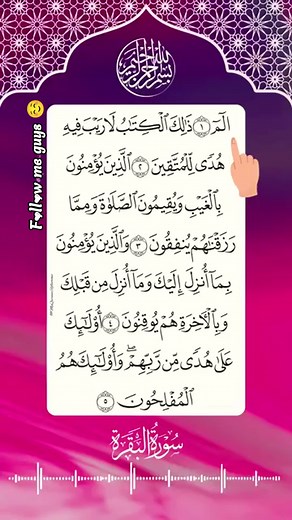 بسم الله الرحمن الرحيم
الٓمٓ ۝١ ذَٰلِكَ ٱلْكِتَٰبُ لَا رَيْبَ فِيهِ
هُدًى لِّلْمُتَّقِينَ ۝٢ ٱلَّذِينَ يُؤْمِنُونَ
بِٱلْغَيْبِ وَيُقِيمُونَ ٱلصَّلَوٰةَ وَمِمَّا
رَزَقْنَٰهُمْ يُنفِقُونَ ۝٣ وَٱلَّذِينَ يُؤْمِنُونَ
بِمَآ أُنزِلَ إِلَيْكَ وَمَآ أُنزِلَ مِن قَبْلِكَ
وَبِٱلْءَاخِرَةِ هُمْ يُوقِنُونَ ۝٤ أُو۟لَٰٓئِكَ
عَلَىٰ هُدًى مِّن رَّبِّهِمْ ۖ وَأُو۟لَٰٓئِكَ هُمُ
ٱلْمُفْلِحُونَ ۝٥
سُورَةُ الْبَقَرَةِ
F♥ll♥w me guys